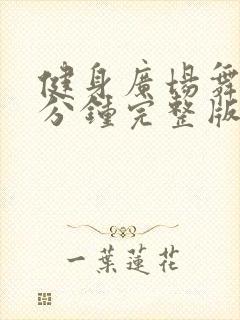 健身廣場舞
分鐘完整版
一葉蓮花